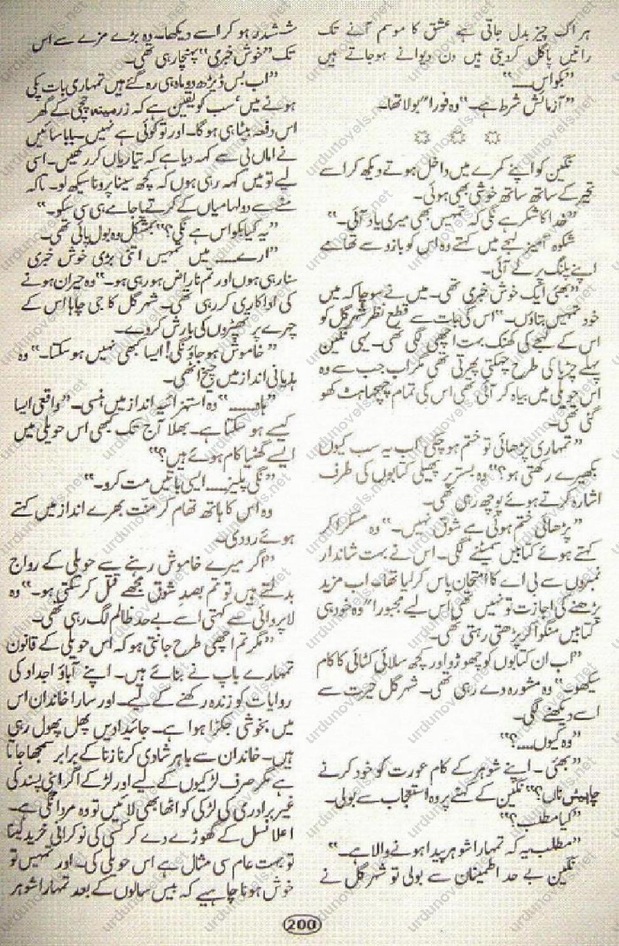 ہر اک چیز بدل جاتی ہے عشق کا موسم آنے تک
راتیں پاگل کردیتی ہیں دن دیوانے ہوجاتے ہیں
”بکواس۔۔۔۔“
”آزمائش شرط ہے۔“ وہ فورا“ بولا تھا۔
نگین کو اپنے کمرے میں داخل ہوتے دیکھ کر اسے
تحیر کے ساتھ ساتھ خوشی بھی ہوئی۔
”خدا کا شکر ہے نگی کہ تمہیں بھی میری یاد آئی۔“
شکوہ آمیز لہجے میں کہتے وہ اس کو بازو سے تھامے
اپنے پلنگ پر لے آئی۔
”بھئی ایک خوش خبری تھی۔ میں نے سوچا کہ میں
خود تمہیں بتاؤں۔“ اس کی بات سے قطع نظر شہر گل کو
اس کے لہجے کی کھنک بہت اچھی لگی تھی۔ یہی نگین
پہلے چڑیا کی طرح چہکتی پھرتی تھی مگر اب جب سے وہ
اس حویلی میں بیاہ کر آئی تھی اس کی تمام چہچہاہٹ کھو
گئی تھی۔
”تمہاری پڑھائی تو ختم ہوچکی اب یہ سب کیوں
بکھیرے رکھتی ہو؟“ وہ بستر پر پھیلی کتابوں کی طرف
اشارہ کرتے ہوئے پوچھ رہی تھی۔
”پڑھائی ختم ہوئی ہے شوق نہیں۔“ وہ مسکرا کر
کہتے ہوئے کتابیں سمیٹنے لگی۔ اس نے بہت شاندار
نمبروں سے بی اے کا امتحان پاس کرلیا تھا۔ اب مزید
پڑھنے کی اجازت تو نہیں تھی اس لیے مجبورا“ وہ خود ہی
کتابیں منگوا کر پڑھتی رہتی تھی۔
”اب ان کتابوں کو چھوڑو اور کچھ سلائی کٹائی کا کام
سیکھو۔“ وہ مشورہ دے رہی تھی۔ شہر گل حیرت سے
اسے دیکھنے لگی۔
”وہ کیوں۔۔۔۔؟“
”بھئی۔ اپنے شوہر کے کام عورت کو خود کرنے
چاہئیں ناں؟“ نگین کے کہنے پر وہ استعجاب سے بولی۔
”کیا مطلب؟“
”مطلب یہ کہ تمہارا شوہر پیدا ہونے والا ہے۔“
نگین بے حد اطمینان سے بولی تو شہر گل نے
ششدر ہو کر اسے دیکھا۔ وہ بڑے مزے سے اس
تک ”خوش خبری“ پہنچا رہی تھی۔
”اب بس ڈیڑھ دو ماہ ہی رہ گئے ہیں تمہاری بات پکی
ہونے میں‘ سب کو یقین ہے کہ زرمینہ چچی کے گھر
اس دفعہ بیٹا ہی ہوگا۔ اور تو کوئی ہے نہیں۔ بابا سائیں
نے اماں بی سے کہہ دیا ہے کہ تیاریاں کر رکھیں۔ اسی
لیے تو میں کہہ رہی ہوں کہ کچھ سینا پرونا سیکھ لو۔ تاکہ
منے سے دولہا میاں کے کرتے پاجامے ہی سی سکو۔“
”یہ کیا بکواس ہے نگی؟“ بمشکل وہ بول پائی تھی۔
”ارے۔۔۔۔ میں تمہیں اتنی بڑی خوش خبری
سنا رہی ہوں اور تم ناراض ہو رہی ہو۔“ وہ حیران ہونے
کی اداکاری کر رہی تھی۔ شہر گل کا جی چاہا اس کے
چہرے پر تھپڑوں کی بارش کر دے۔
”خاموش ہو جاؤ نگی! ایسا کبھی نہیں ہو سکتا۔“ وہ
ہذیانی انداز میں چیخ اٹھی۔
”ہاہ۔۔۔۔“ وہ استہزائیہ انداز میں ہنسی۔ ”واقعی ایسا
کیسے ہو سکتا ہے۔ بھلا آج تک کبھی اس حویلی میں
ایسے گھٹیا کام ہوئے ہیں؟“
”نگی پلیز۔۔۔۔ ایسی باتیں مت کرو۔“
وہ اس کا ہاتھ تھام کر منت بھرے انداز میں کہتے
ہوئے رودی۔
”اگر میرے خاموش رہنے سے حویلی کے رواج
بدلتے ہیں تو تم بصد شوق مجھے قتل کر سکتی ہو۔“ وہ
لاپروائی سے کہتی اسے بے حد ظالم لگ رہی تھی۔
”مگر تم اچھی طرح جانتی ہو کہ اس حویلی کے قانون
تمہارے باپ نے بنائے ہیں۔ اپنے آباؤ اجداد کی
روایات کو زندہ رکھنے کے لیے۔ اور سارا خاندان اس
میں بخوشی جکڑا ہوا ہے۔ جائیدادیں پھل پھول رہی
ہیں۔ خاندان سے باہر شادی کرنا زنا کے برابر سمجھا جاتا
ہے مگر صرف لڑکیوں کے لیے اور لڑکے اگر اپنی پسند کی
غیر برادری کی لڑکی کو اٹھا بھی لائیں تو وہ مردانگی ہے۔
اعلا نسل کے گھوڑے دے کر کسی کی نوکرانی خرید لینا
تو بہت عام سی مثال ہے اس حویلی کی۔ اور تمہیں تو
خوش ہونا چاہیے کہ بیس سالوں کے بعد تمہارا شوہر
200
urdunovels.net